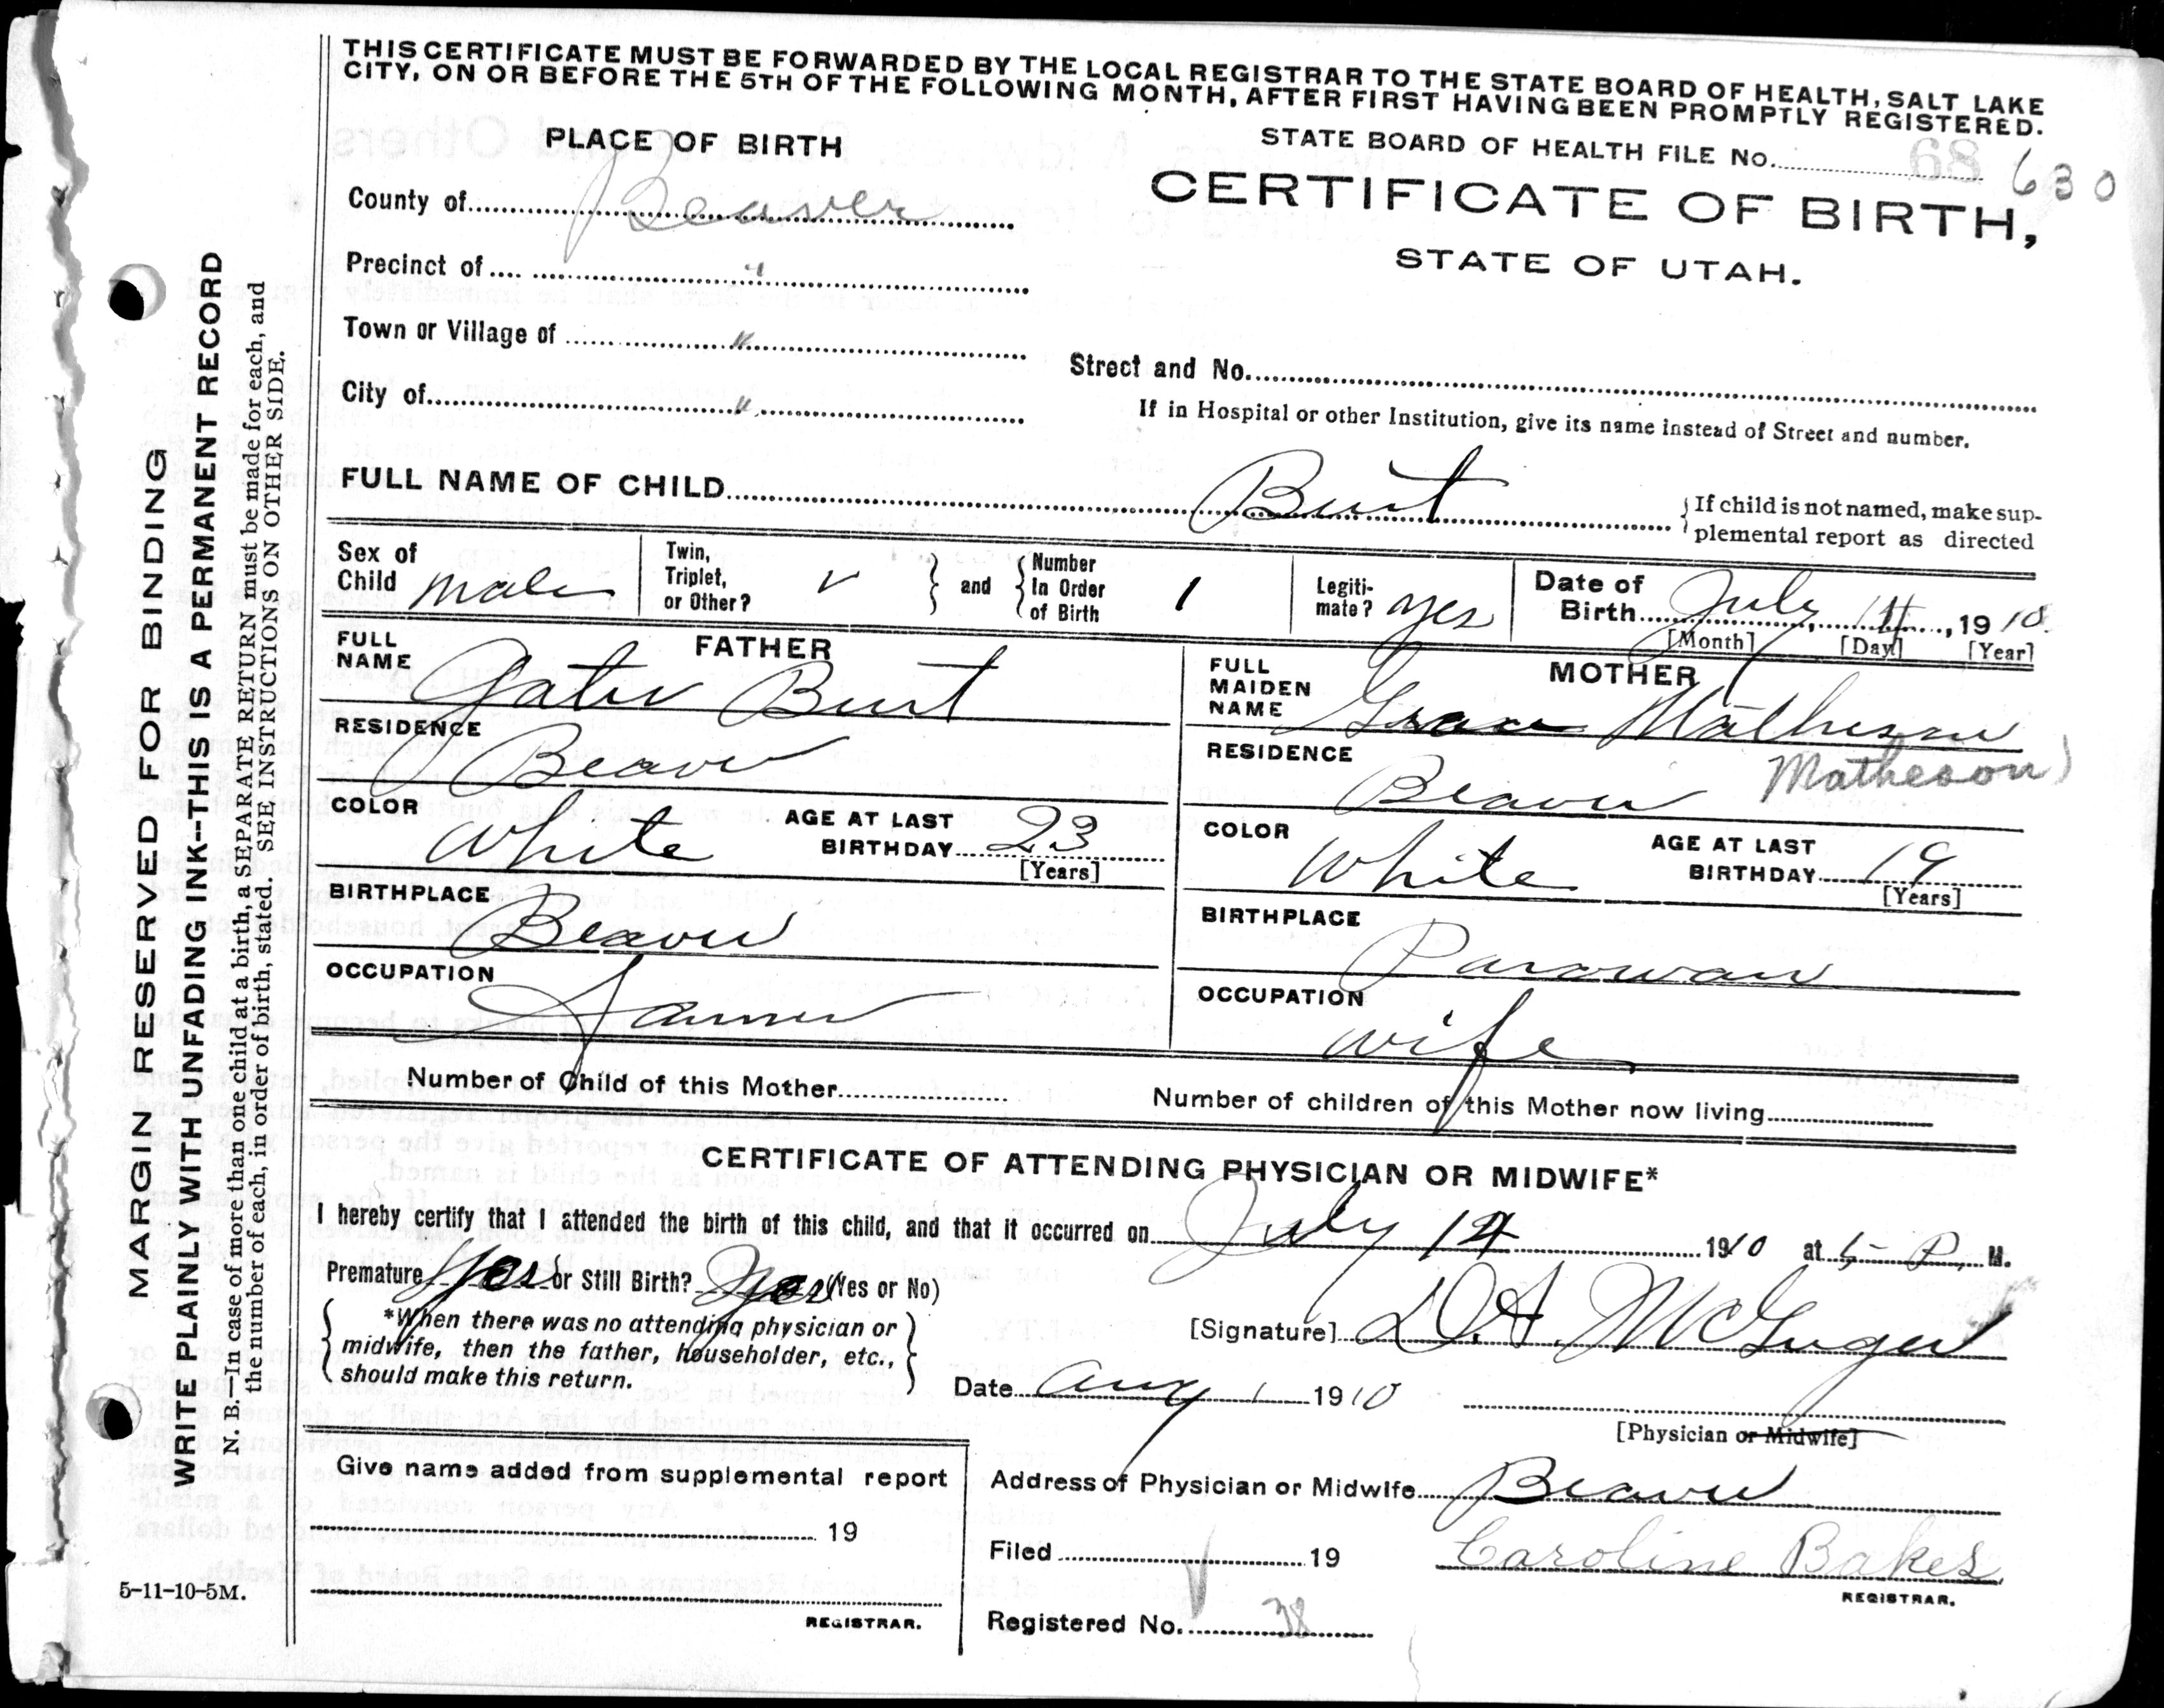 THIS CERTIFICATE MUST BE FORWARDED BY THE LOCAL REGISTRAR TO THE STATE BOARD OF HEALTH, SALT LAKE
CITY, ON OR BEFORE THE 5TH OF THE FOLLOWING MONTH, AFTER FIRST HAVING BEEN PROMPTLY REGISTERED.
PLACE OF BIRTH
STATE BOARD OF HEALTH FILE No. 68 630
County of Beaver
CERTIFICATE OF BIRTH,
STATE OF UTAH.
Precinct of "
Town or Village of "
Street and No.
City of "
If in Hospital or other Institution, give its name instead of Street and number.
FULL NAME OF CHILD Burt
If child is not named, make sup-
plemental report as directed
Sex of Child male
Twin, Triplet, or Other? and Number In Order of Birth 1
Legiti-mate? yes
Date of Birth July , 1910
[Month] [Day] [Year]
FATHER
FULL NAME Burt
RESIDENCE Beaver
COLOR White AGE AT LAST BIRTHDAY 23
[Years]
BIRTHPLACE Beaver
OCCUPATION Farmer
MOTHER
FULL MAIDEN NAME Grace Matheson
Matheson)
RESIDENCE Beaver
COLOR White AGE AT LAST BIRTHDAY 19
[Years]
BIRTHPLACE Parowan
OCCUPATION wife
Number of Child of this Mother
Number of children of this Mother now living
CERTIFICATE OF ATTENDING PHYSICIAN OR MIDWIFE*
I hereby certify that I attended the birth of this child, and that it occurred on July 1910 at 5 P. M.
Premature or Still Birth? (Yes or No)
*When there was no attending physician or
midwife, then the father, householder, etc.,
should make this return.
[Signature] D.A. McGregor
Date Aug 1 1910
[Physician or Midwife]
Give name added from supplemental report
19
REGISTRAR.
Address of Physician or Midwife Beaver
Filed 19 Caroline Bakes
REGISTRAR.
Registered No. 38
5-11-10-5M.
MARGIN RESERVED FOR BINDING
WRITE PLAINLY WITH UNFADING INK--THIS IS A PERMANENT RECORD
N. B.—In case of more than one child at a birth, a SEPARATE RETURN must be made for each, and
the number of each, in order of birth, stated. SEE INSTRUCTIONS ON OTHER SIDE.